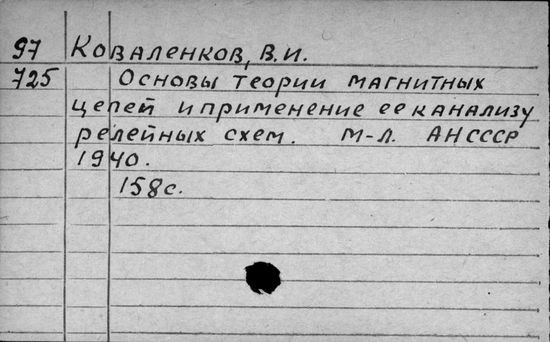 97 Коваленков, В.И.
725 Основы теории магнитных
цепей и применение ее к анализу
релейных схем. М-Л. АН СССР
1940.
158 с.